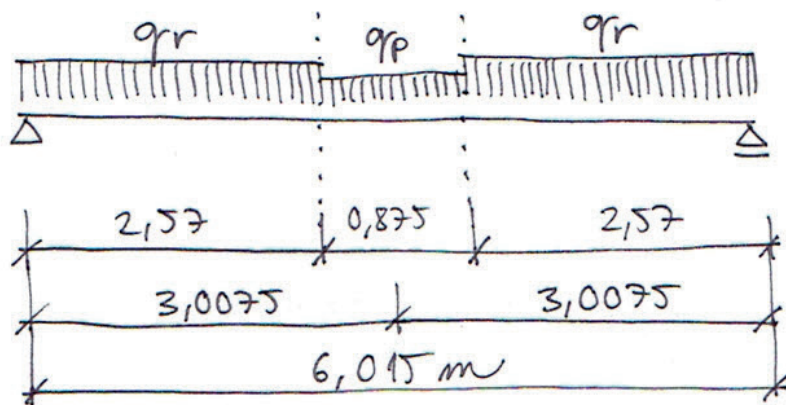 qr qp qr
2,57 0,875 2,57
3,0075 3,0075
6,015 m